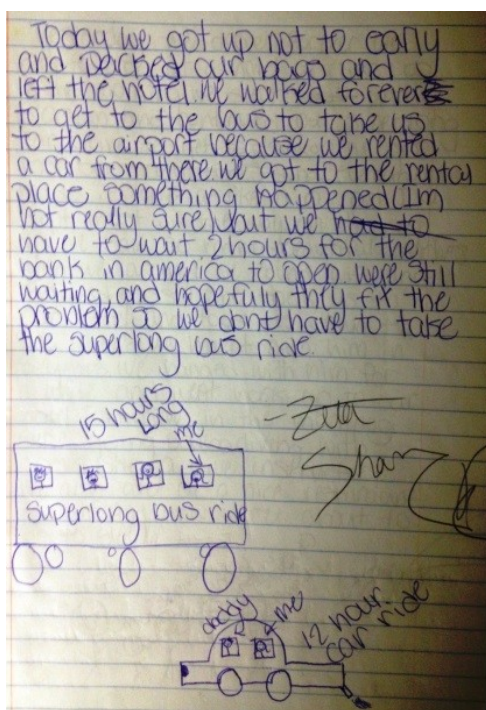 Today we got up not to early
and packed our bags and
left the hotel. we walked forever
to get to the bus to take us
to the airport because we rented
a car from there. we got to the rental
place something happened(Im
not really sure) but we had to
have to wait 2 hours for the
bank in america to open. were still
waiting, and hopefuly they fix the
problem so we dont have to take
the superlong bus ride.
15 hours
long
me
superlong bus ride
daddy
me
12 hour
car ride